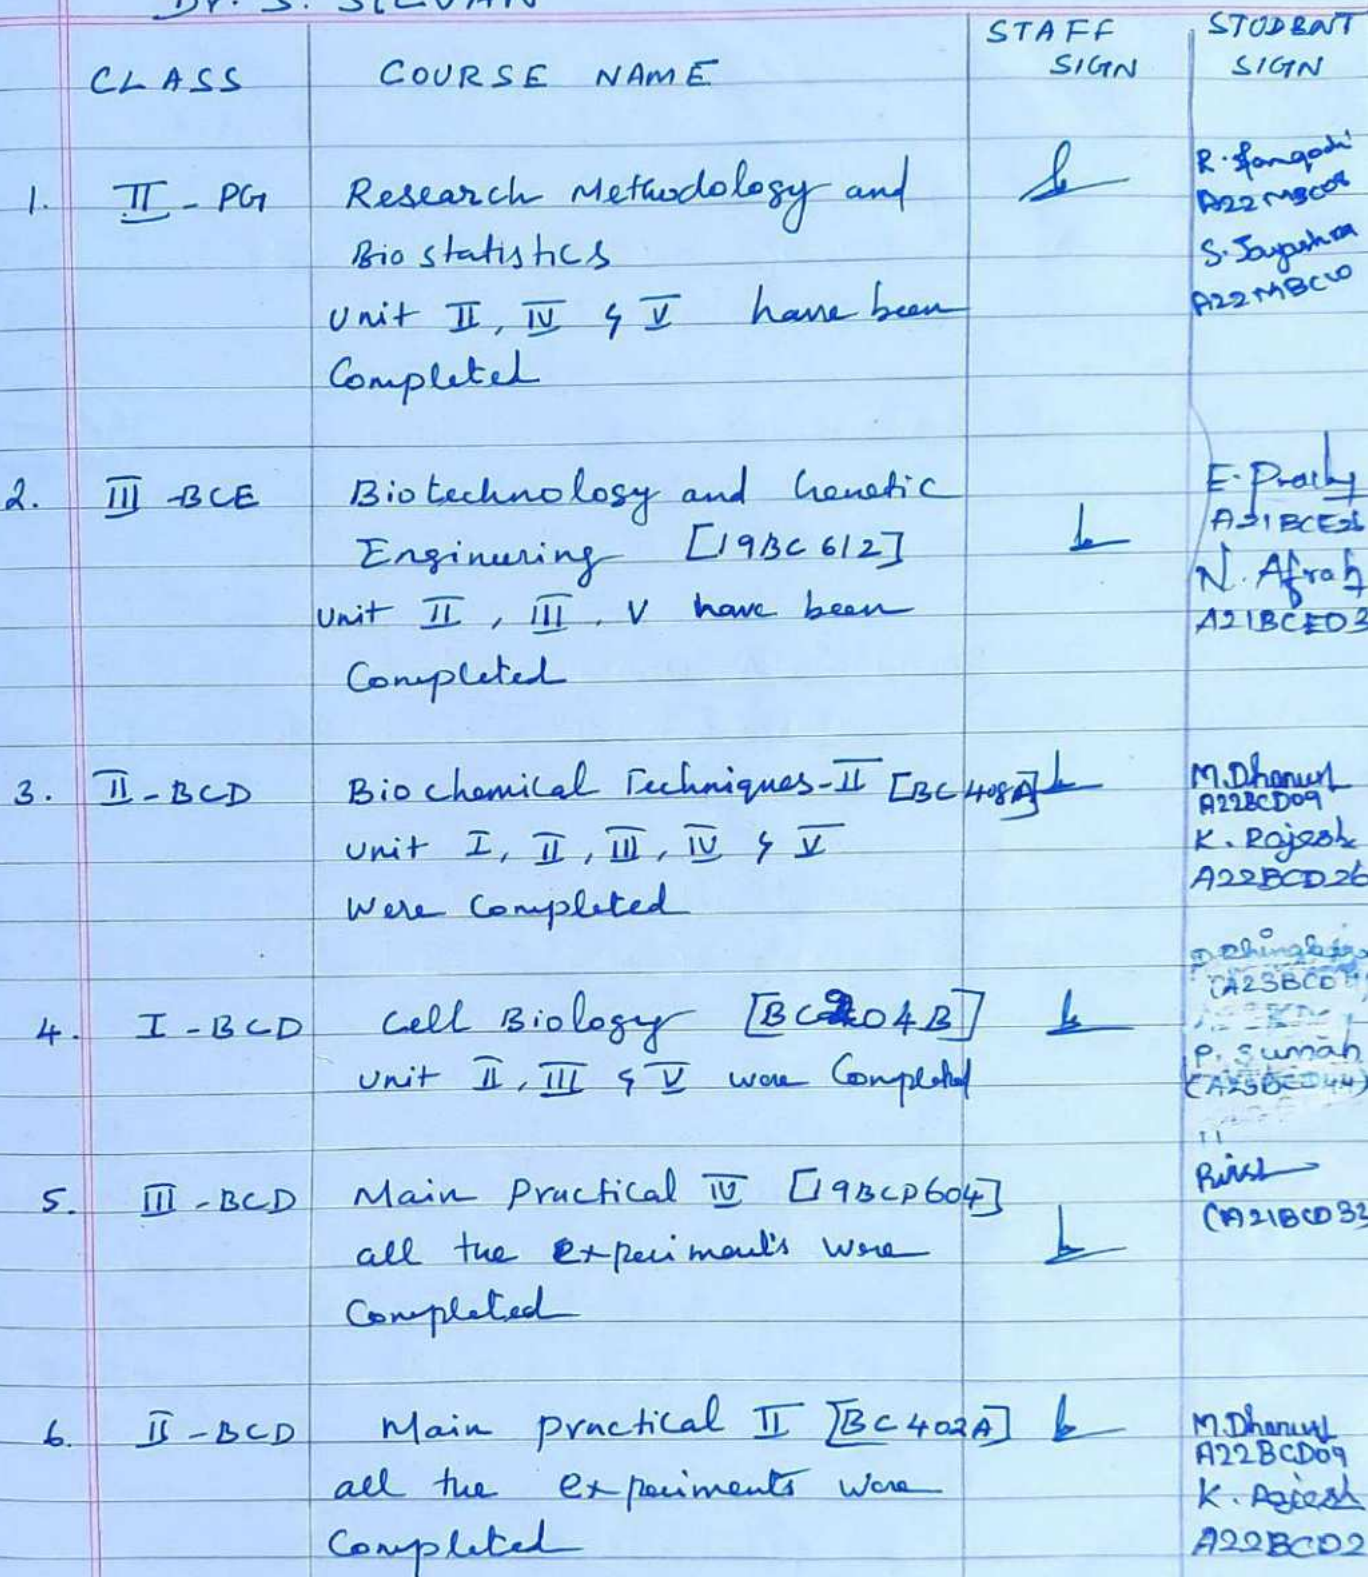 Dr. S.
CLASS COURSE NAME STAFF SIGN STUDENT SIGN
1. II - PG Research Methodology and
Bio statistics
Unit II, IV & V have been
Completed
A22MBC10
2. III - BCE Biotechnology and Genetic
Engineering [19BC612]
Unit II, III, V have been
Completed
N. Afrah
A21BCE03
3. II - BCD Biochemical Techniques-II [BC408A]
Unit I, II, III, IV & V
Were Completed
A22BCD09
K. Rajesh
A22BCD26
4. I - BCD Cell Biology [BC204B]
Unit II, III & V were Completed
P. Suman
(A23BCD44)
5. III - BCD Main Practical IV [19BCP604]
all the experiments were
Completed
(A21BCD32
6. II - BCD Main practical II [BC402A]
all the experiments were
Completed
A22BCD09
K. Rajesh
A22BCD2